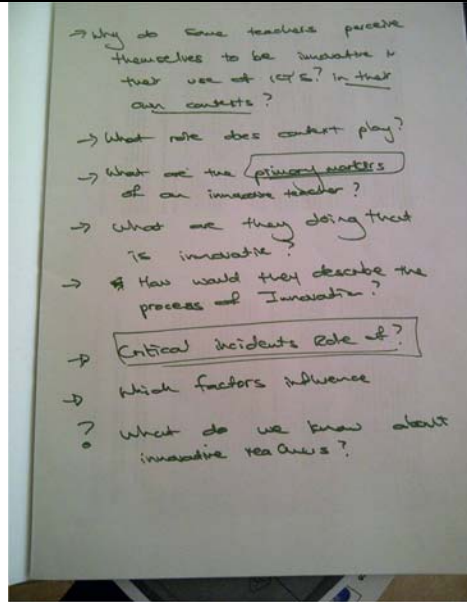 → Why do some teachers perceive
themselves to be innovative in
their use of ICT'S? in their
own contexts?
→ What role does context play?
→ What are the primary markers
of an innovative teacher?
→ What are they doing that
is innovative?
→ How would they describe the
process of Innovation?
→ Critical incidents Role of?
→ Which factors influence
? What do we know about
innovative teachers?